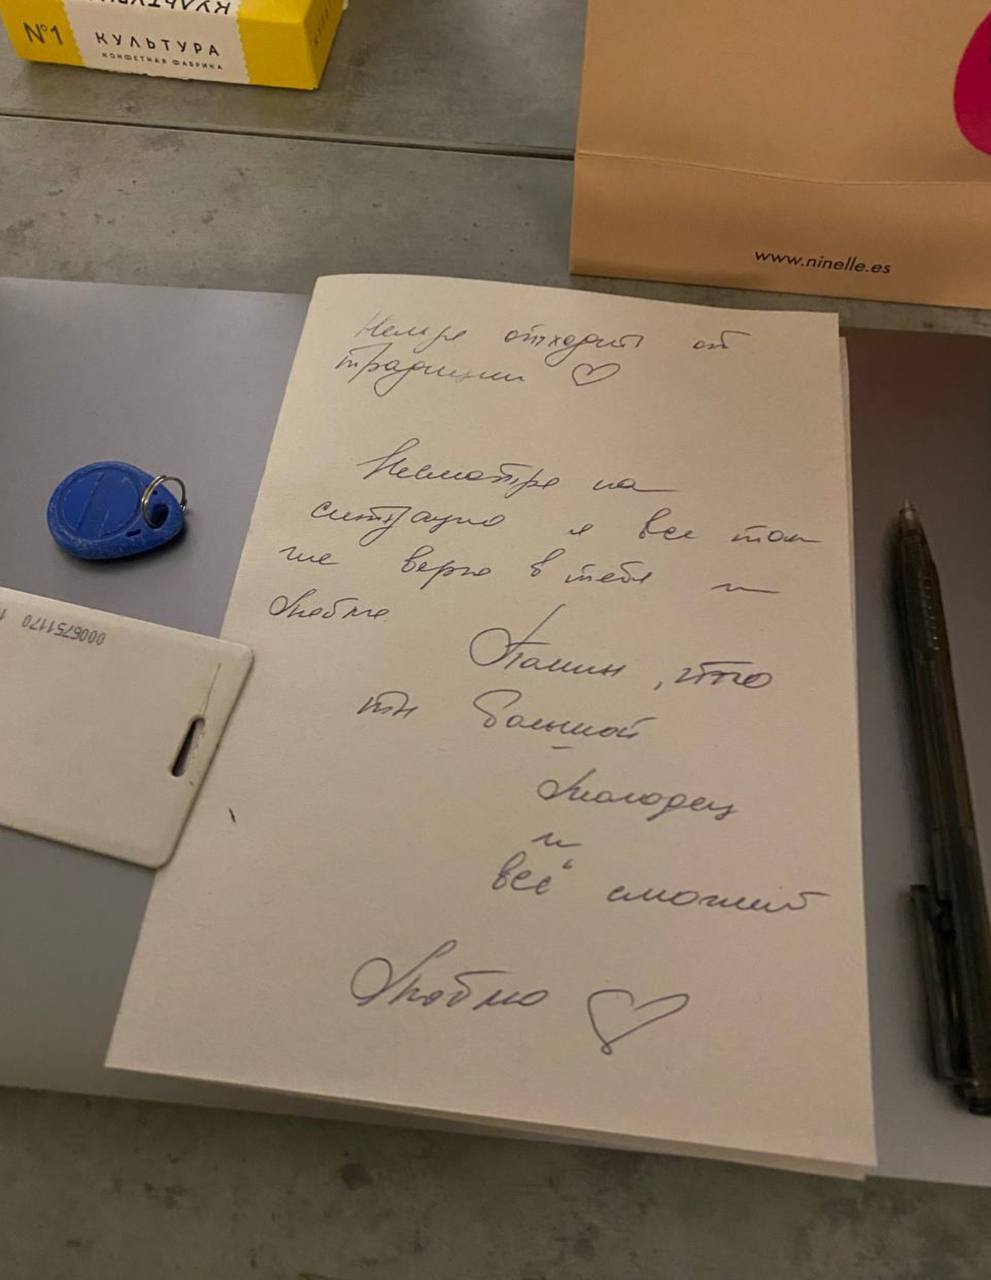 КУЛЬТУРА
№1
КУЛЬТУРА
КОНФЕТНАЯ ФАБРИКА
www.ninelle.es
Нельзя отходить от
традиции ♡
Несмотря на
ситуацию я все так
же верю в тебя и
люблю
Помни, что
ты большой
молодец
и
всё сможешь
Люблю ♡
0006751170